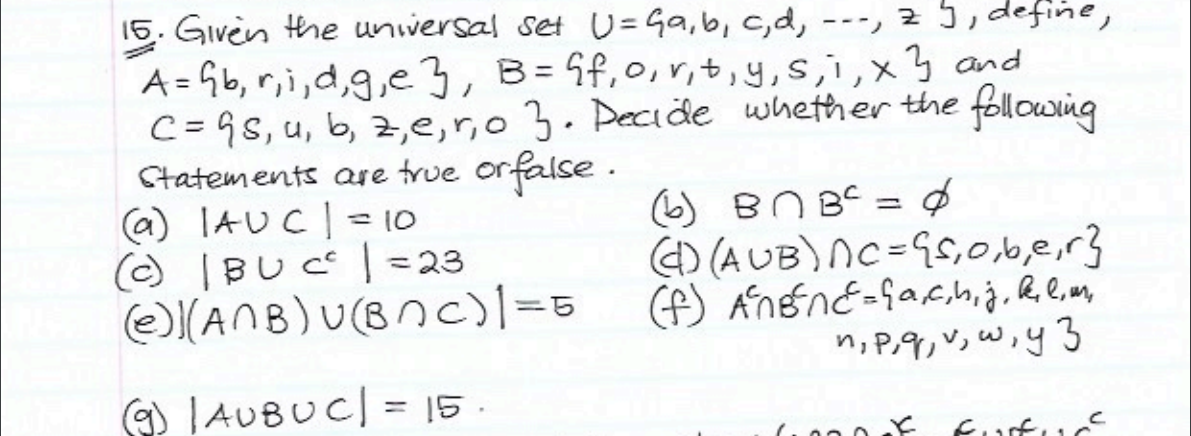 15. Given the universal set U={a,b,c,d, ---, z}, define,
A={b,r,i,d,g,e}, B={f,o,r,t,y,s,i,x} and
C={s,u,b,z,e,r,o}. Decide whether the following
statements are true or false.
(a) |A∪C| = 10
(b) B∩Bᶜ = ∅
(c) |B∪Cᶜ| = 23
(d) (A∪B)∩C={s,o,b,e,r}
(e) |(A∩B)∪(B∩C)| = 5
(f) Aᶜ∩Bᶜ∩Cᶜ={a,c,h,j,k,l,m,
n,p,q,v,w,y}
(g) |A∪B∪C| = 15.